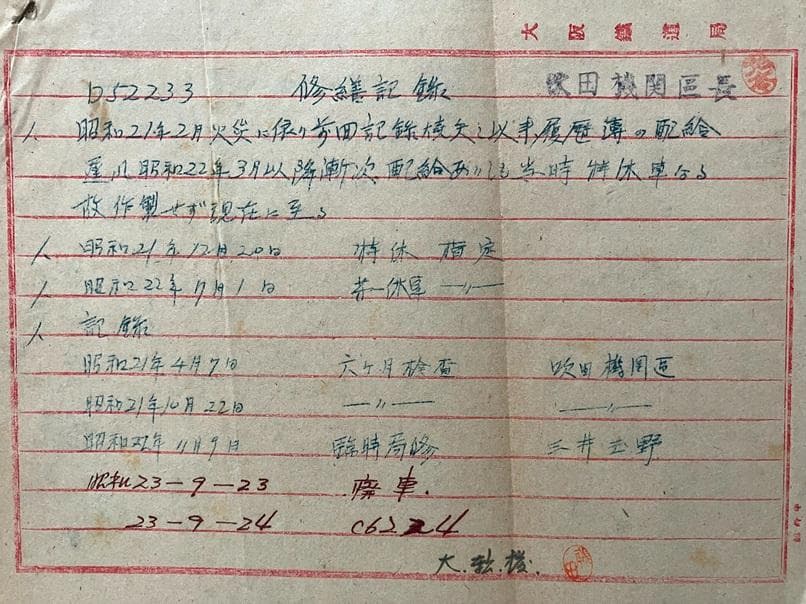 大阪鐵道局
D52233 修繕記錄 吹田機関區長
昭和21年2月火災に依り前回記錄焼失之以来履歴簿の配給
遅れ昭和22年3月以降漸次配給ありしも当時特休車なる
故作製せず現在に至る
昭和21年12月20日 特休 指定
昭和22年7月1日 第一休車 〃
記錄
昭和21年4月7日 六ケ月検査 吹田機関區
昭和21年10月22日 〃 〃
昭和22年11月9日 臨時局修 三井玉野
昭和23-9-23 廃車.
23-9-24 C62 24
大.鉄.機.